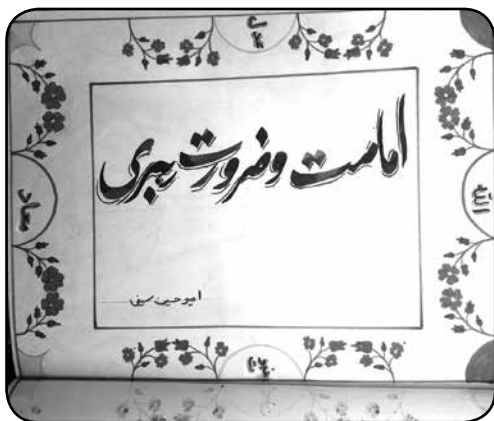 امامت و ضرورت رهبری
امیرحسین سیفی
الله